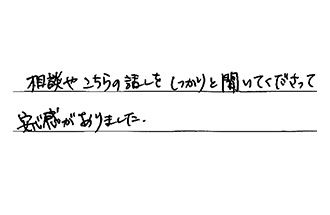 相談やこちらの話しをしっかりと聞いてくださって
安心感がありました.